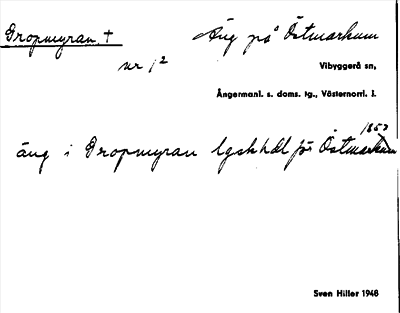 Dropmyran. †
Äng på Östmarkum
nr 1²
Vibyggerå sn,
Ångermanl. s. doms. tg., Västernorrl. l.
1853
äng i Dropmyran lgskhdl för Östmarkum
Sven Hiller 1948